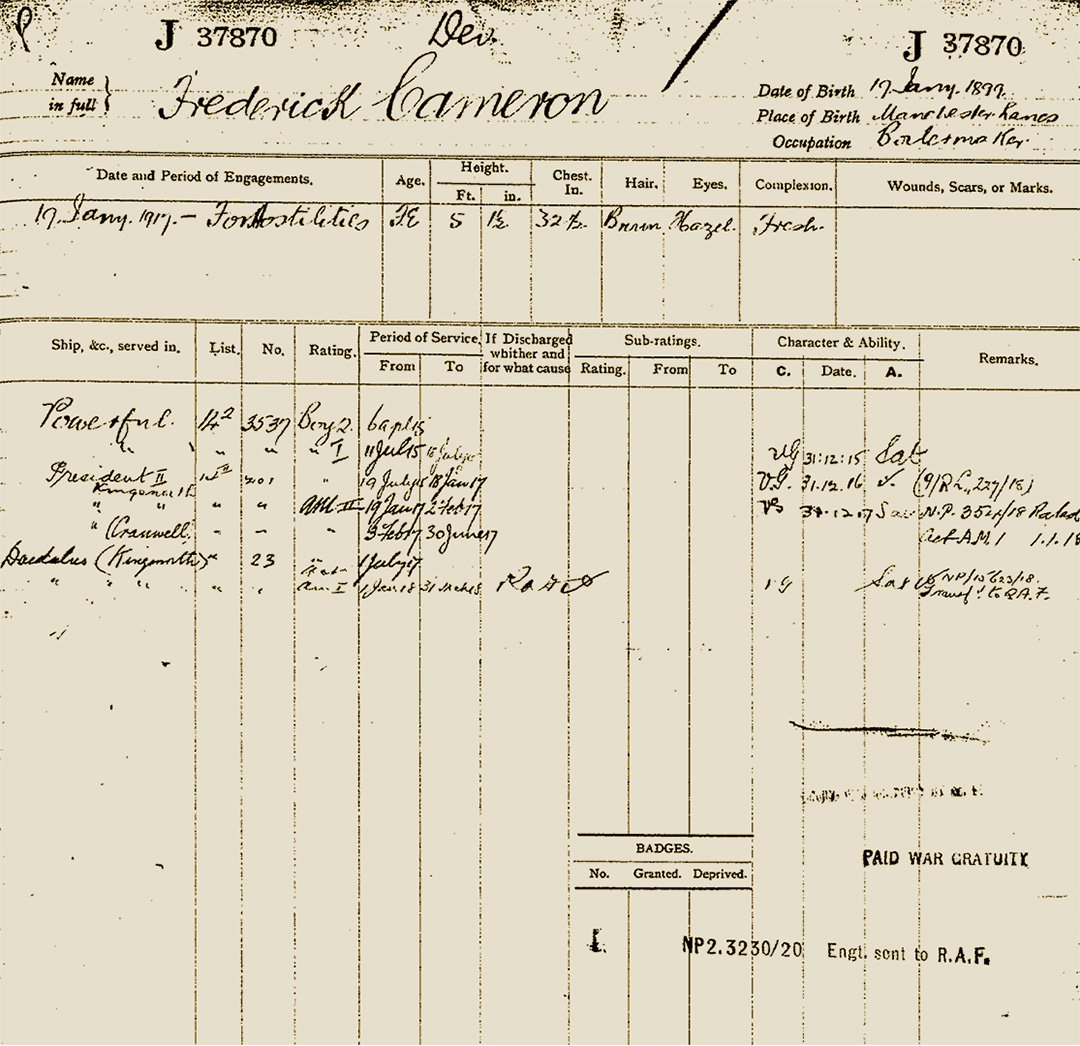 J 37870 Dev. J 37870
Name in full } Frederick Cameron
Date of Birth 17 Jany. 1899
Place of Birth Manchester Lancs
Occupation Boilermaker
Date and Period of Engagements. Age. Height. Ft. in. Chest. In. Hair. Eyes. Complexion. Wounds, Scars, or Marks.
17 Jany. 1917 - For Hostilities 5 1½ 32½ Brown Hazel. Fresh.
Ship, &c., served in. List. No. Rating. Period of Service. From To If Discharged whither and for what cause Sub-ratings. Rating. From To Character & Ability. C. Date. A. Remarks.
Powerful. 14² 3537 Boy 2. 6 apl 15
" " " " I 11 Jul 15 VG 31:12:15 Sat
President II 201 " 19 July 15 18 Jan 17 V.G. 31.12.16 (9/RL, 227/18)
Kingsnorth
" " " " 19 Jan 17 2 Feb 17 VG 31.12.17 Sat N.P.
" (Cranwell) - - " 3 Feb 17 30 June 17 Act A.M.1 1.1.18
Daedalus (Kingsnorth) " 23 1 July 17
" " " " " Act AM I 1 Jan 18 31 Sat NP/
Transfd to R.A.F.
BADGES.
No. Granted. Deprived.
PAID WAR GRATUITY
NP2.3230/20 Engt. sent to R.A.F.